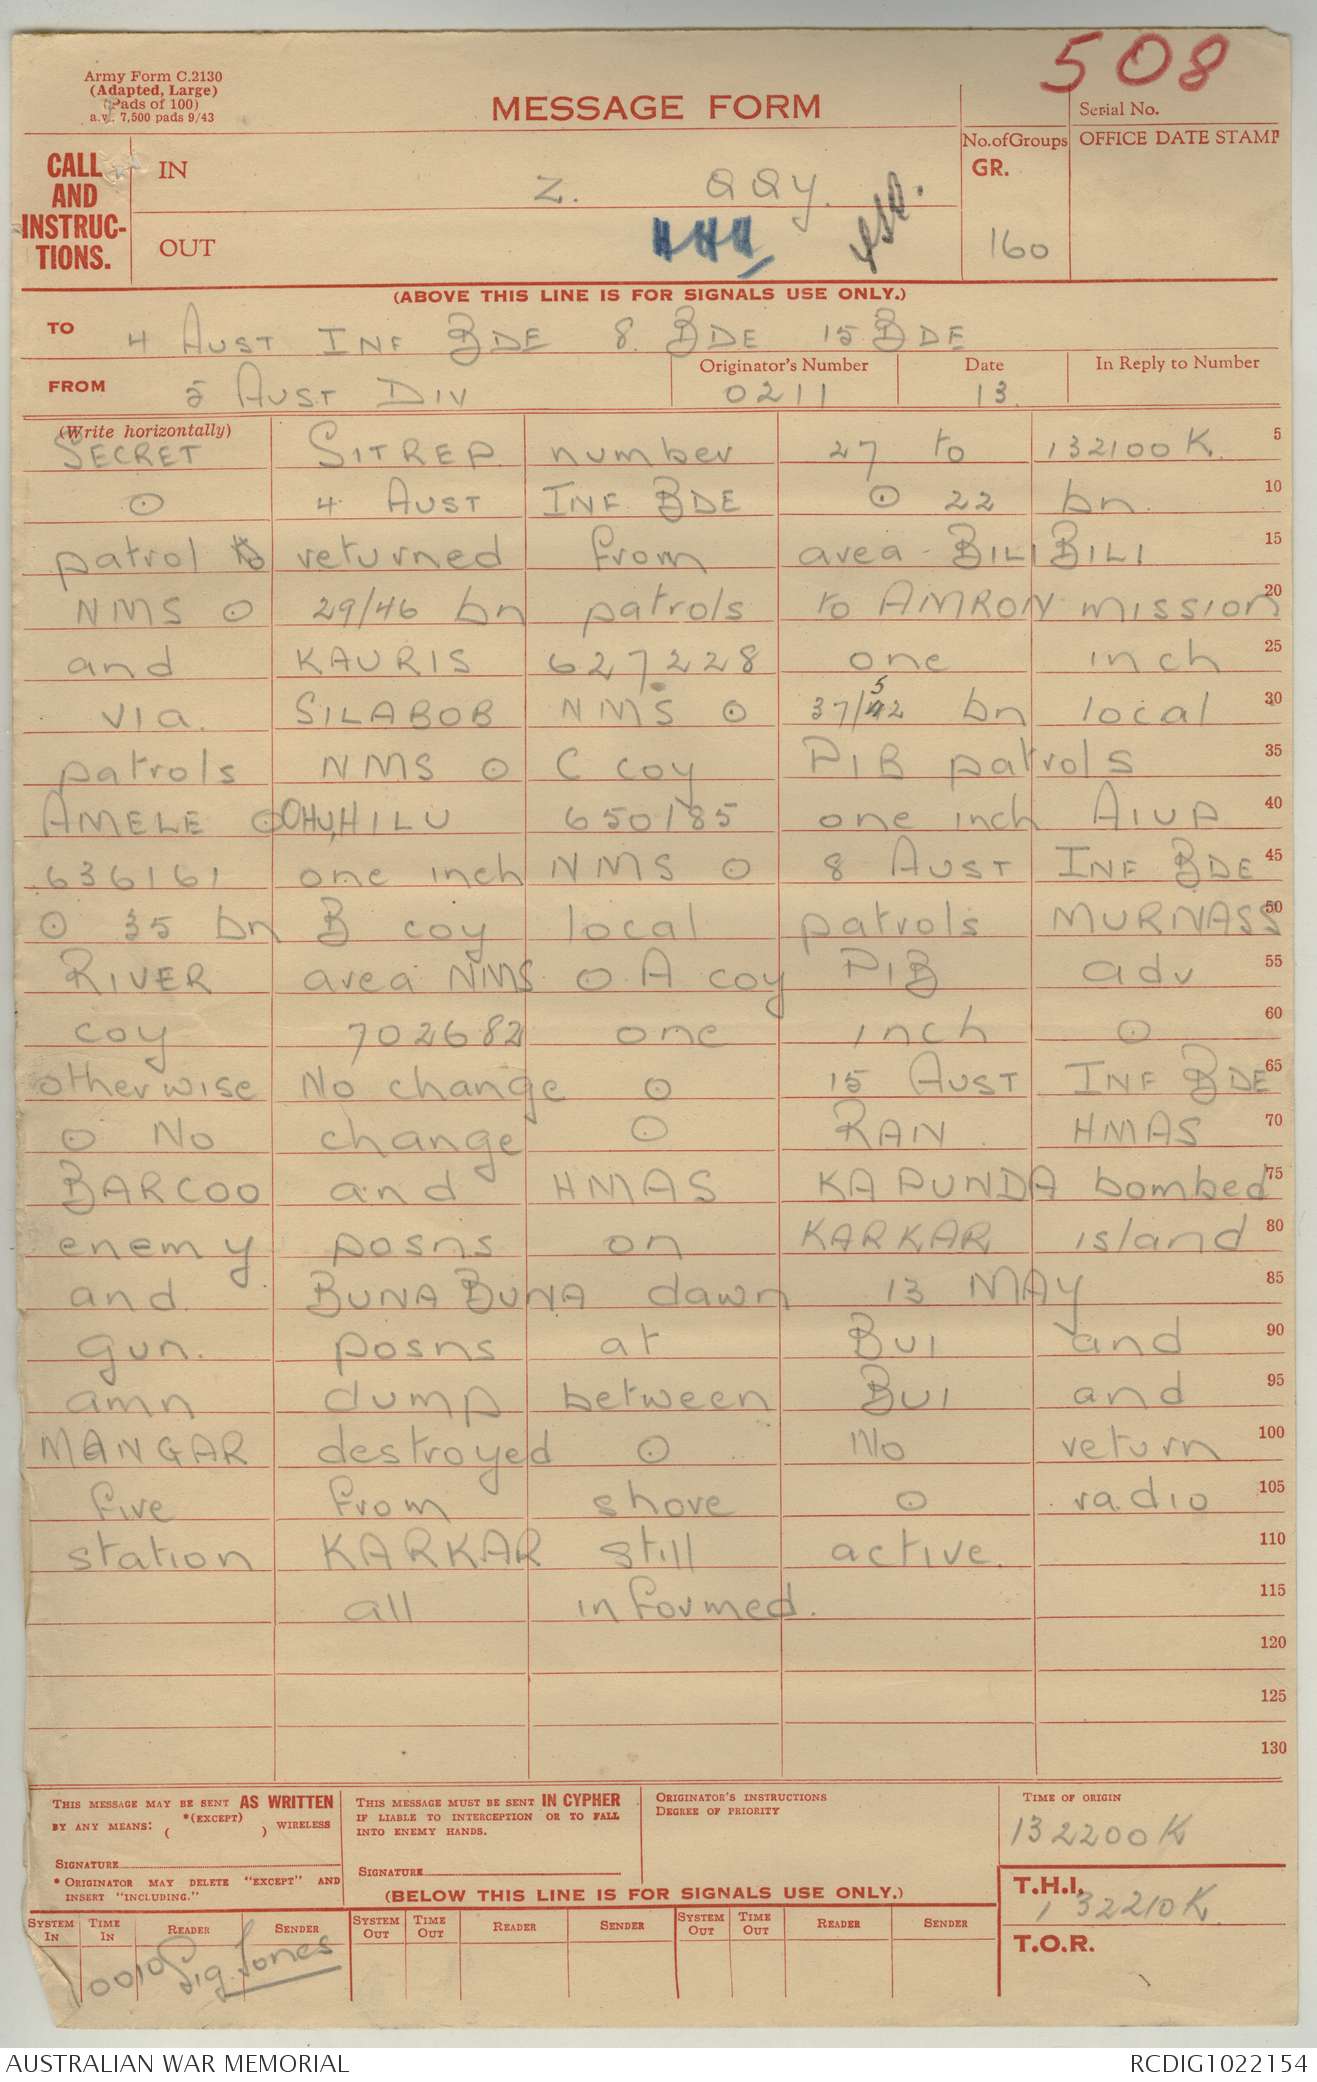 508
Army Form C.2130
(Adapted, Large)
(Pads of 100)
a.w. 7,500 pads 9/43
MESSAGE FORM
Serial No.
No. of Groups
GR.
160
OFFICE DATE STAMP
CALL AND INSTRUC-TIONS.
IN
Z. QQY.
OUT
(ABOVE THIS LINE IS FOR SIGNALS USE ONLY.)
TO 4 AUST INF BDE 8 BDE 15 BDE
FROM 5 AUST DIV
Originator's Number 0211
Date 13.
In Reply to Number
(Write horizontally)
SECRET SITREP number 27 to 132100K. 5
⊙ 4 AUST INF BDE ⊙ 22 bn. 10
patrol returned from area BILI BILI 15
NMS ⊙ 29/46 bn patrols to AMRON mission 20
and KAURIS 627228 one inch 25
via. SILABOB NMS ⊙ 37/52 bn local 30
patrols NMS ⊙ C coy PIB patrols 35
AMELE ⊙ OHUHILU 650185 one inch AIUP 40
636161 one inch NMS ⊙ 8 AUST INF BDE 45
⊙ 35 bn B coy local patrols MURNASS 50
RIVER area NMS ⊙ A coy PIB adv 55
coy 702682 one inch ⊙ 60
otherwise No change ⊙ 15 AUST INF BDE 65
⊙ No change ⊙ RAN HMAS 70
BARCOO and HMAS KAPUNDA bombed 75
enemy posns on KARKAR island 80
and BUNA BUNA dawn 13 MAY 85
gun. posns at BUI and 90
amn dump between BUI and 95
MANGAR destroyed ⊙ No return 100
five from shore ⊙ radio 105
station KARKAR still active. 110
all informed. 115
120
125
130
THIS MESSAGE MAY BE SENT AS WRITTEN
BY ANY MEANS: *(EXCEPT) ( ) WIRELESS
SIGNATURE
* ORIGINATOR MAY DELETE "EXCEPT" AND INSERT "INCLUDING."
THIS MESSAGE MUST BE SENT IN CYPHER
IF LIABLE TO INTERCEPTION OR TO FALL
INTO ENEMY HANDS.
SIGNATURE
ORIGINATOR'S INSTRUCTIONS
DEGREE OF PRIORITY
TIME OF ORIGIN
132200K
(BELOW THIS LINE IS FOR SIGNALS USE ONLY.)
T.H.I.
132210K
T.O.R.
SYSTEM IN TIME IN READER SENDER SYSTEM OUT TIME OUT READER SENDER SYSTEM OUT TIME OUT READER SENDER
0010 Sig Jones
AUSTRALIAN WAR MEMORIAL
RCDIG1022154